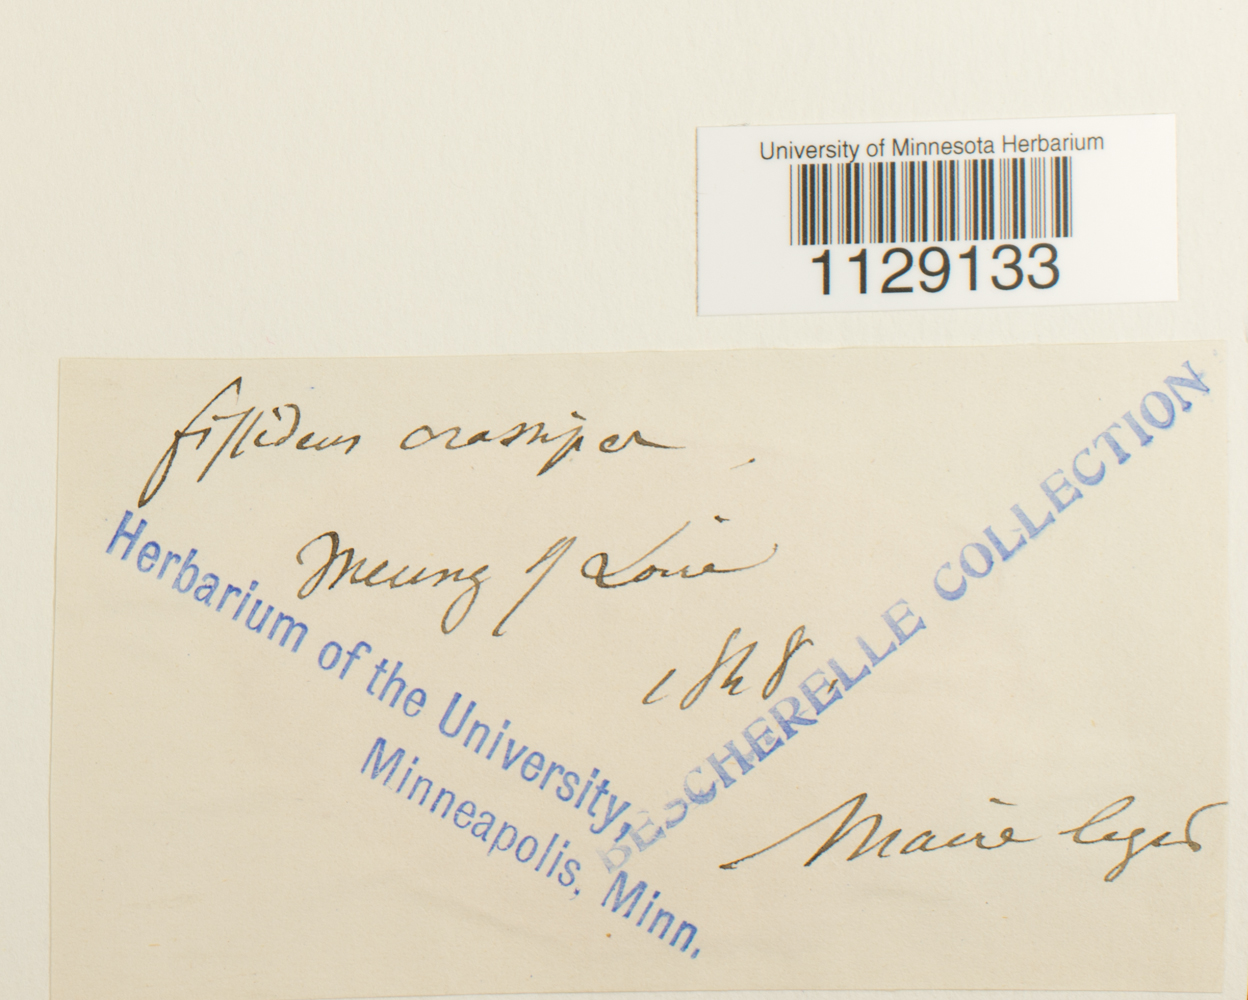 University of Minnesota Herbarium
1129133
fissidens crassipes
Meung s/ Loire
1848.
Maire legit
Herbarium of the University,
Minneapolis, Minn.
BESCHERELLE COLLECTION